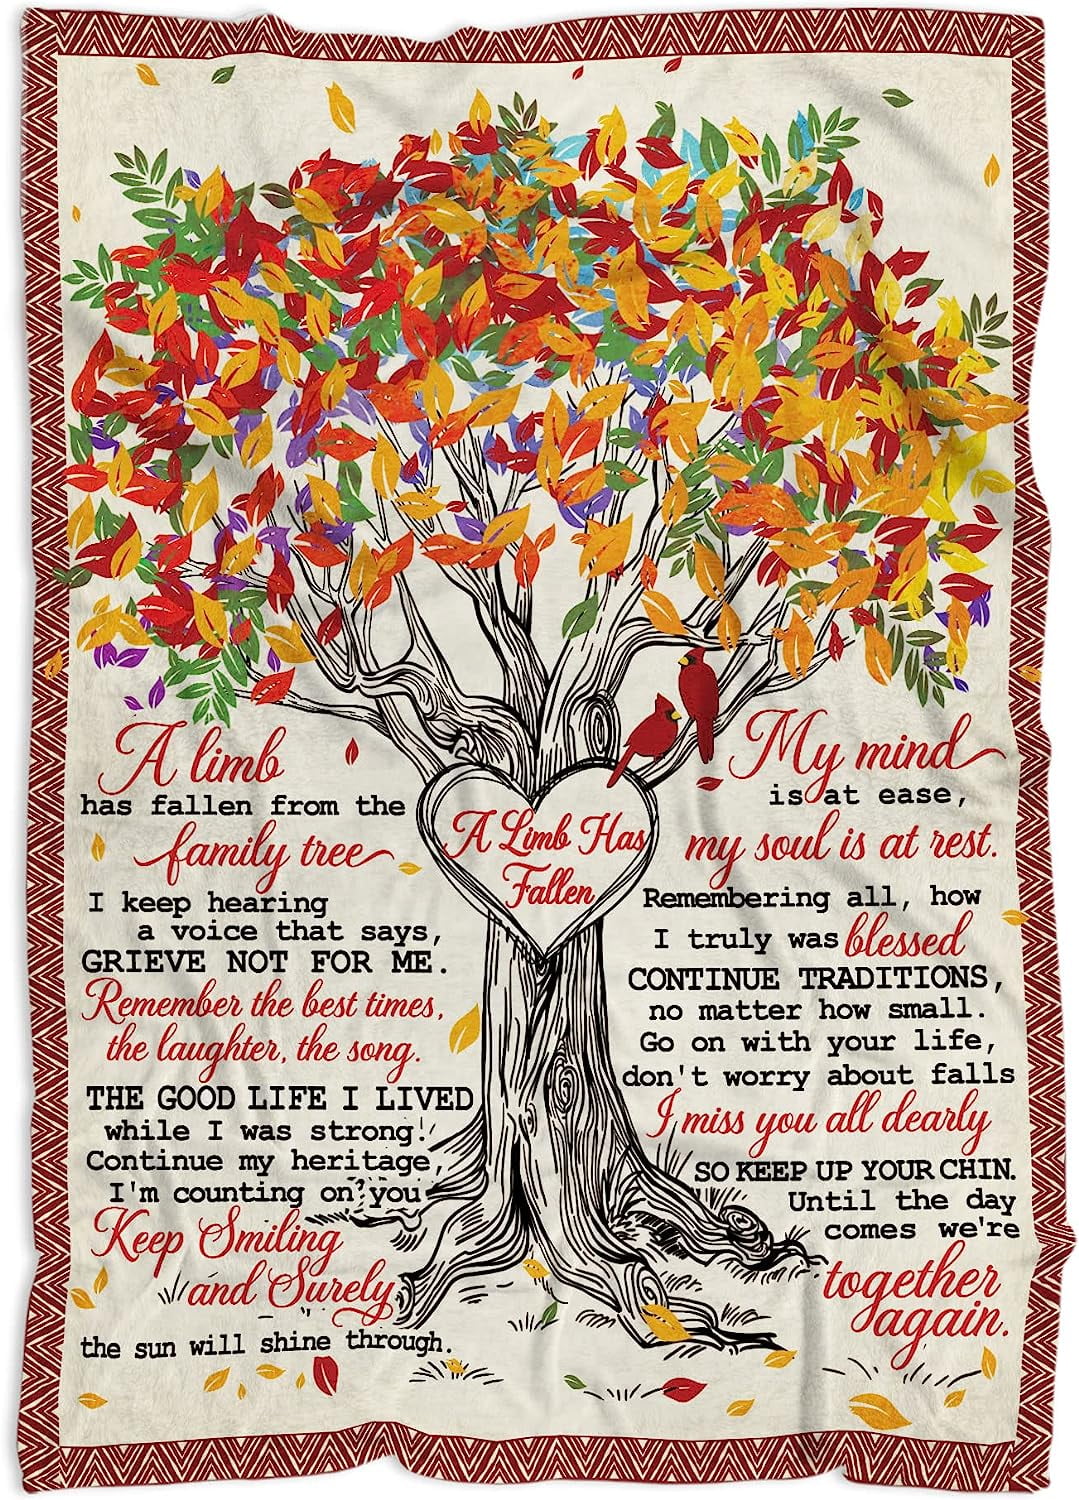 A limb
has fallen from the
family tree
I keep hearing
a voice that says,
GRIEVE NOT FOR ME.
Remember the best times,
the laughter, the song.
THE GOOD LIFE I LIVED
while I was strong.
Continue my heritage,
I'm counting on you
Keep Smiling
and Surely
the sun will shine through.
A Limb Has
Fallen
My mind
is at ease,
my soul is at rest.
Remembering all, how
I truly was blessed
CONTINUE TRADITIONS,
no matter how small.
Go on with your life,
don't worry about falls
I miss you all dearly
SO KEEP UP YOUR CHIN.
Until the day
comes we're
together
again.